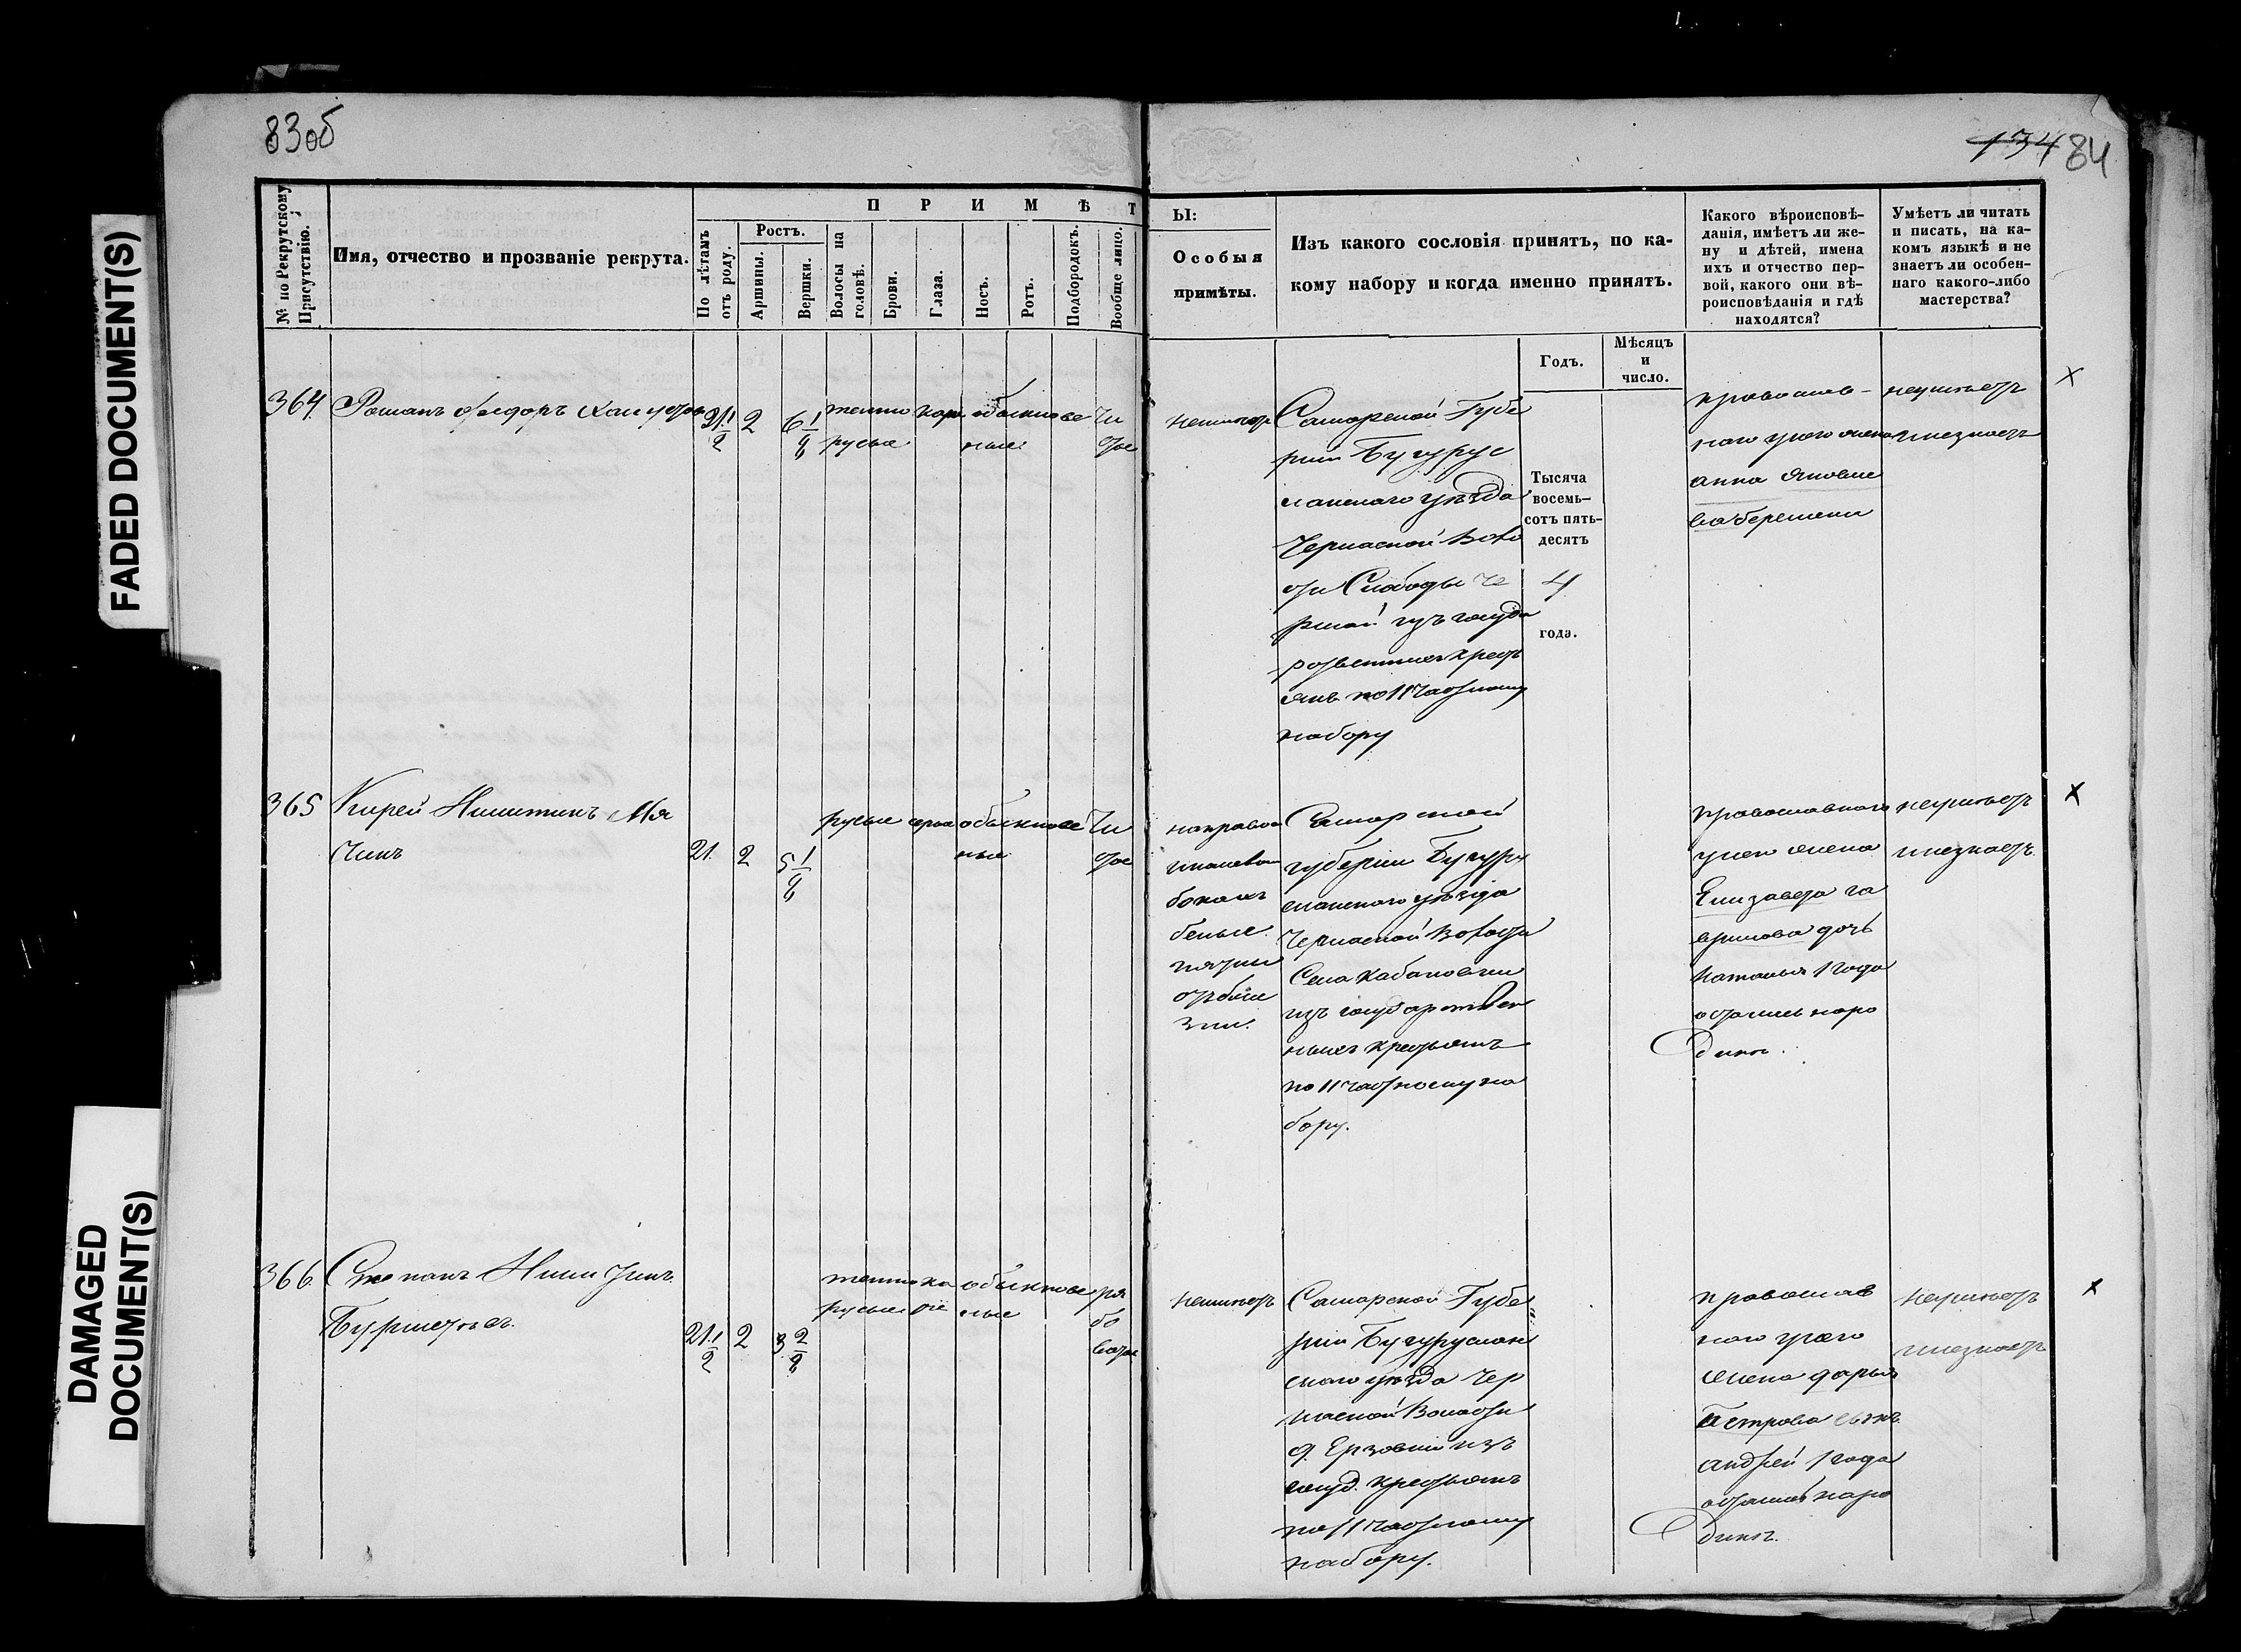 83об
134 84
FADED DOCUMENT(S)
DAMAGED DOCUMENT(S)
№ по Рекрутскому Присутствію.
Имя, отчество и прозваніе рекрута.
ПРИМѢТ
Ы:
По лѣтамъ отъ роду.
Ростъ.
Аршины.
Вершки.
Волосы на головѣ.
Брови.
Глаза.
Носъ.
Ротъ.
Подбородокъ.
Вообще лицо.
Особыя
примѣты.
Изъ какого сословія принятъ, по ка-
кому набору и когда именно принятъ.
Какого вѣроисповѣ-
данія, имѣетъ ли же-
ну и дѣтей, имена
ихъ и отчество пер-
вой, какого они вѣ-
роисповѣданія и гдѣ
находятся?
Умѣетъ ли читать
и писать, на ка-
комъ языкѣ и не
знаетъ ли особен-
наго какого-либо
мастерства?
Годъ.
Мѣсяцъ
и
число.
Тысяча
восемь-
сотъ пять-
десятъ
4
года.
364
Романъ Федоръ
21 1/2
2
6 1/8
темно
русые
кари
обыкнове
ные
чи
стое
неимѣетъ
Самарской Губе
рніи Бугурус
ланскаго уѣзда
Черкаской Воло
сти Слободы Че
ркаской изъ госуда
рственныхъ крест
янъ по 11 частному
набору
православ-
наго
анна Яковле
ва беремена
неумѣетъ
инезнаетъ
х
365
Кирей Никитинъ Мя
21.
2
5 1/8
русые
серые
обыкнове
ные
чи
стое
направо
бокахъ
белые
пятны
Самарской
губерніи Бугуру
сланскаго уѣзда
Черкаской Волости
Села Кабановки
изъ государствен
ныхъ крестьянъ
по 11 частному на
бору.
православнаго
жена
Елизавета га
врилова дочь
наталья 1 года
остались наро
динѣ.
неумѣетъ
инезнаетъ
х
366.
Степанъ Никитинъ
21 1/2
2
3 2/8
темно
русые
ка
ріе
обыкнове
ные
ря
бо
ватое
неимѣетъ
Самарской Губе
рніи Бугуруслан
скаго уѣзда Чер
каской Волости
д. Ерзовки изъ
госуд. крестьянъ
по 11 частному
набору.
православ
наго
жена дарья
Петрова сынъ
андрей 1 года
остались наро
динѣ.
неумѣетъ
инезнаетъ
х